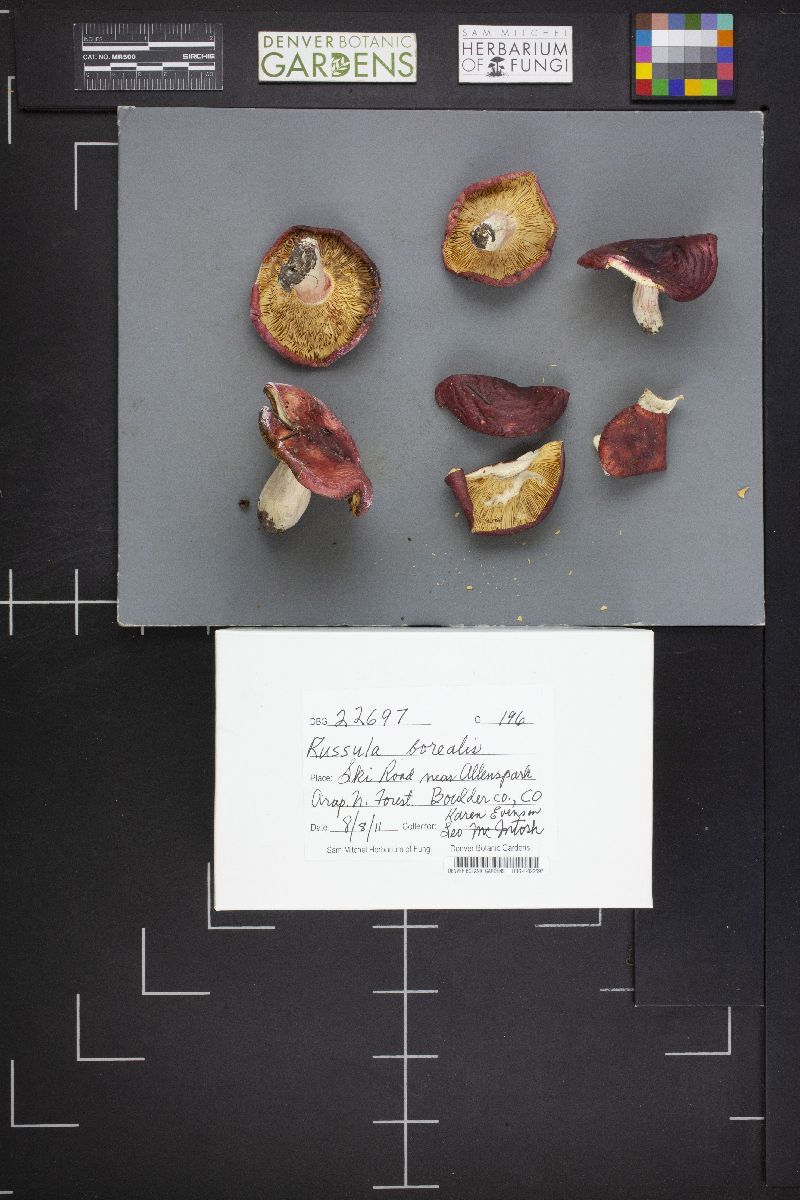 INCHES 1 2
CAT. NO. MR500 SIRCHIE
DENVER BOTANIC
GARDENS
SAM MITCHEL
HERBARIUM
OF FUNGI
DBG 22697 C 196
Russula borealis
Place: Ski Road near Allenspark
Arap. N. Forest. Boulder co., CO
Karen Evenson
Date 8/8/11 Collector: Leo McIntosh
Sam Mitchel Herbarium of Fungi Denver Botanic Gardens
DENVER BOTANIC GARDENS